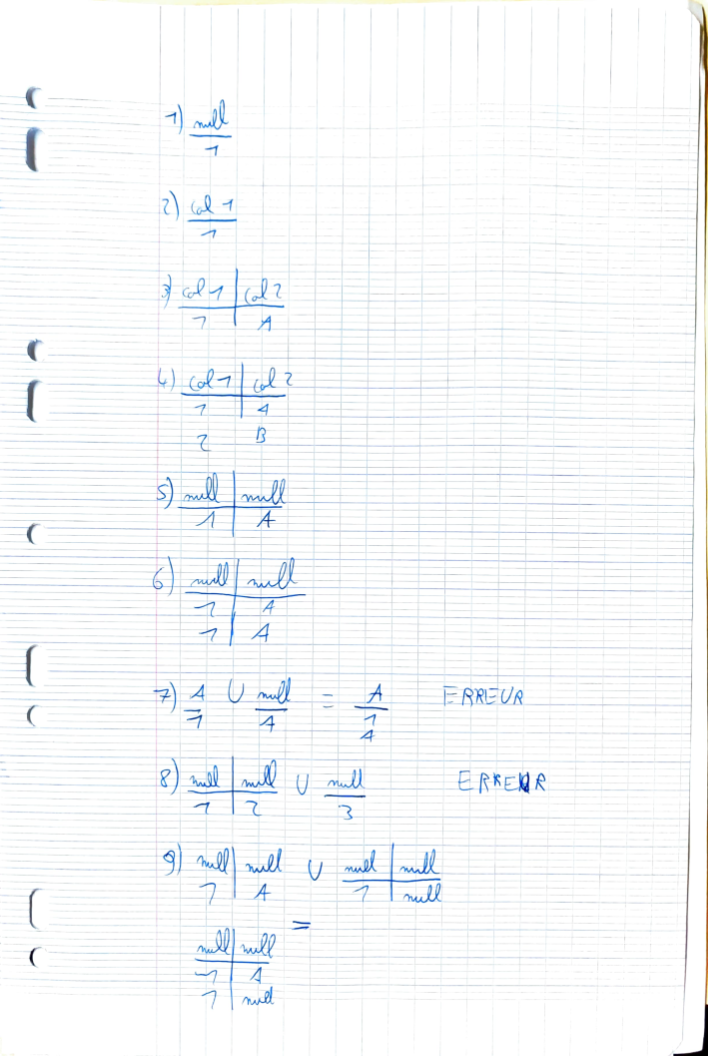 1) null
1
2) col 1
1
3) col 1 | col 2
1 | A
4) col 1 | col 2
1 | A
2 B
5) null | null
1 | A
6) null | null
1 | A
1 | A
7) A U null = A ERREUR
1 A 1
A
8) null | null U null ERREUR
1 | 2 3
9) null | null U null | null
1 | A 1 | null
=
null | null
1 | A
1 | null